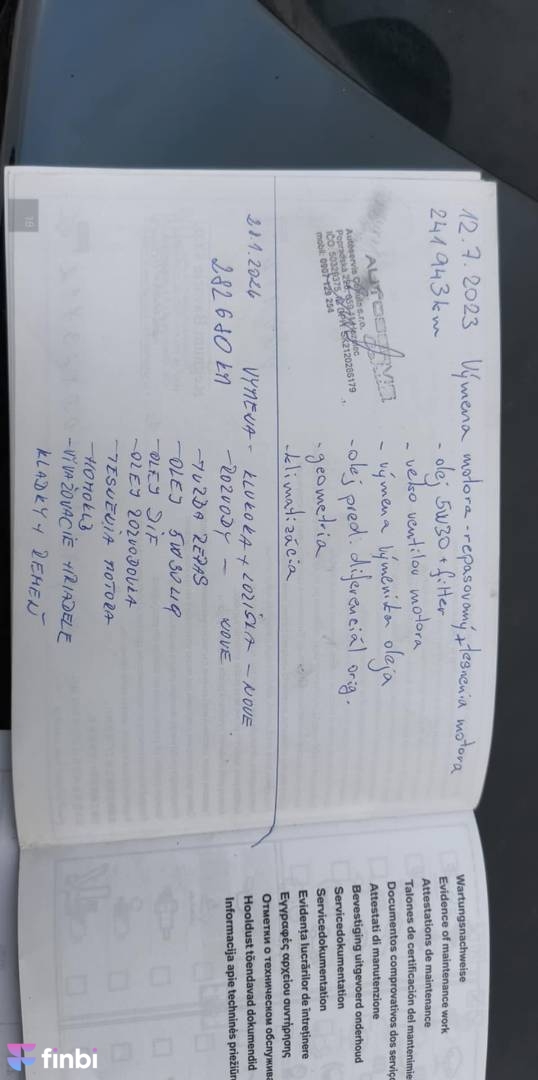 12.7.2023 Výmena motora - repasovaný + tesnenia motora
241943 km
- olej 5W30 + filter
- veko ventilov motora
- výmena výmenika oleja
- olej pred. diferenciál orig.
- geometria
- klimatizácia
Autoservis s.r.o.
Popradská
IČO: 50326375
2120286179
mobil: 0907 129 254
2026 VÝMENA - KLUKOKA + LOŽISKA - NOVE
282680 KM
- ROZVODY - NOVE
- OLEJ 5W30
- OLEJ DIF
- OLEJ ROZVODOVKA
- TESNENIA MOTORA
- HOMOKLB
- VÝVAŽOVACIE HRIADELE
KLADKY + REMEŇ
16
Wartungsnachweise
Evidence of maintenance work
Attestations de maintenance
Talones de certificación del
Documentos comprovativos dos
Attestati di manutenzione
Bevestiging uitgevoerd onderhoud
Servicedokumentation
Servicedokumentation
Evidența lucrărilor de întreținere
Εγγραφές αρχείου συντήρησης
Отметки о техническом
Hooldust tõendavad dokumendid
Informacija apie techninės
finbi